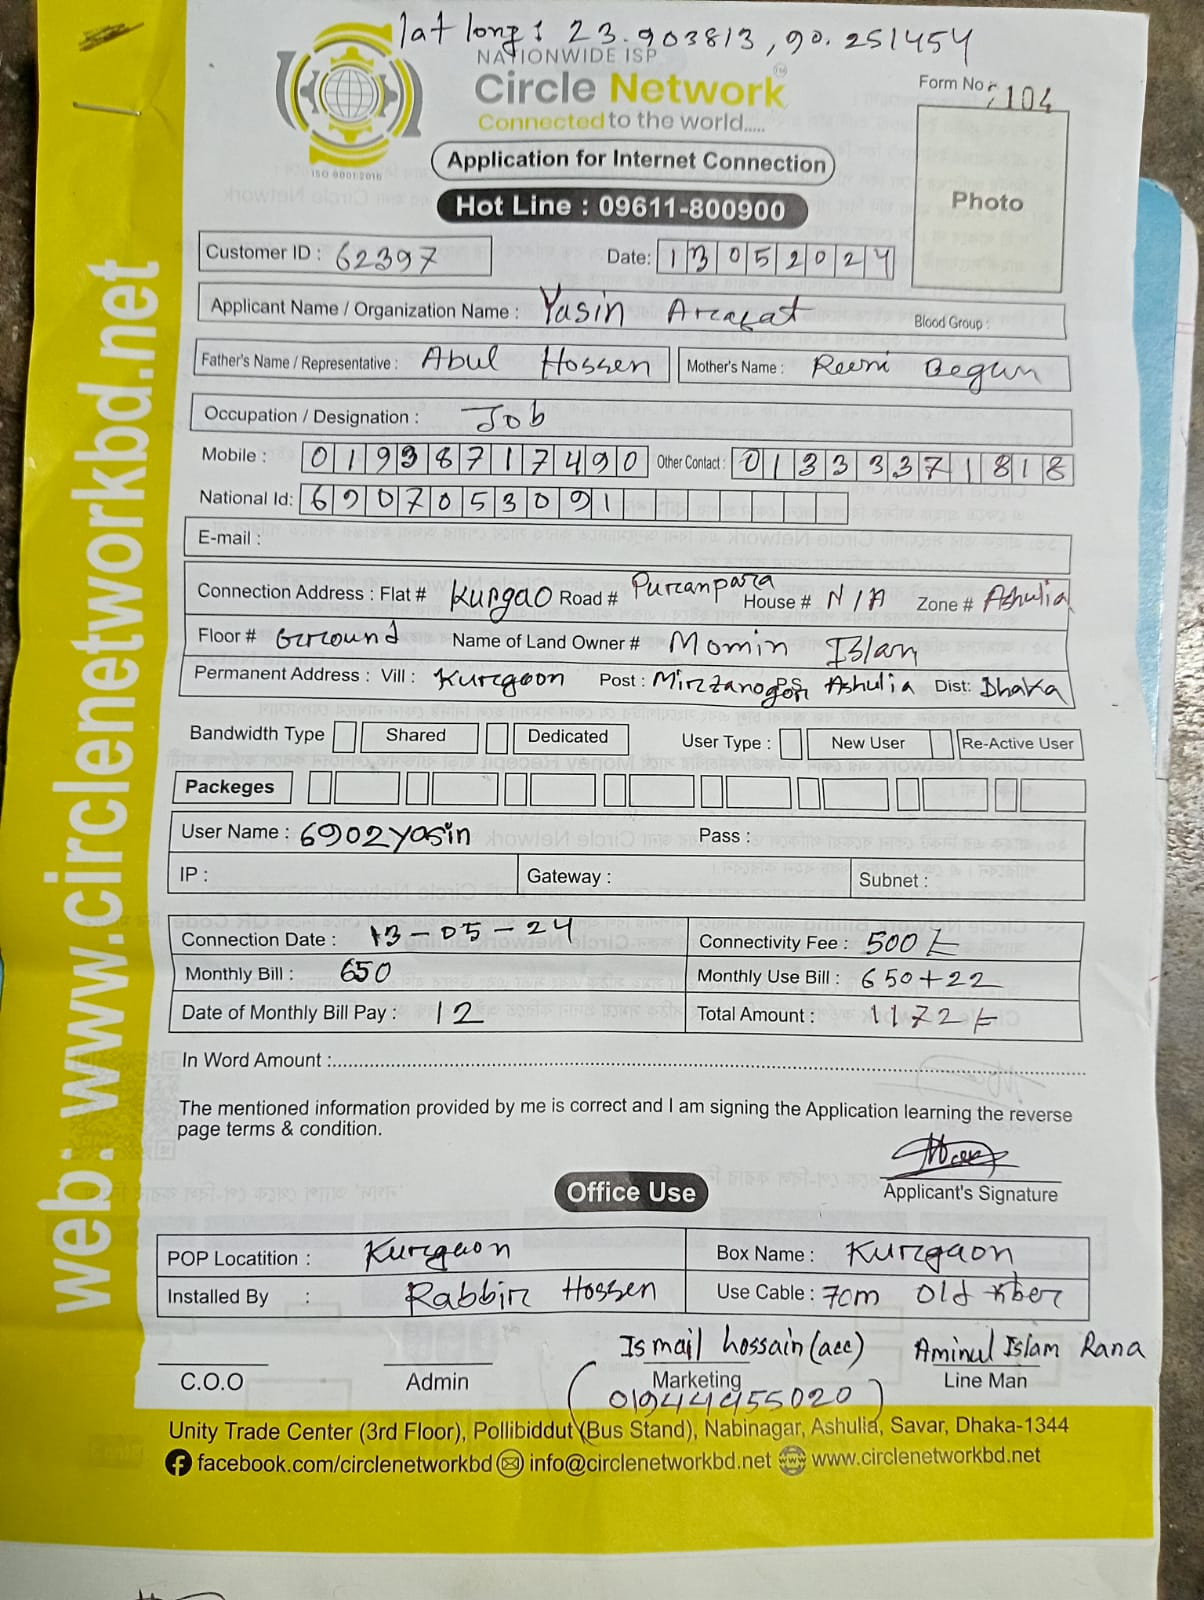 lat long : 23.903813, 90.251454
NATIONWIDE ISP
Circle Network
Connected to the world.....
ISO 9001:2015
Form No : 104
Application for Internet Connection
Hot Line : 09611-800900
Photo
Customer ID : 62397 Date: 13052024
Applicant Name / Organization Name : Yasin Arafat Blood Group :
Father's Name / Representative : Abul Hossen Mother's Name : Begum
Occupation / Designation : Job
Mobile : 01938717490 Other Contact : 01333371818
National Id: 6907053091
E-mail :
Connection Address : Flat # Kurgao Road # Puranpara House # N/A Zone # Ashulia
Floor # Ground Name of Land Owner # Momin Islam
Permanent Address : Vill : Kurgaon Post : Mirzanogor P.S Ashulia Dist: Dhaka
Bandwidth Type Shared Dedicated User Type : New User Re-Active User
Packeges
User Name : 6902yasin Pass :
IP : Gateway : Subnet :
Connection Date : 13-05-24 Connectivity Fee : 500 t
Monthly Bill : 650 Monthly Use Bill : 650+22
Date of Monthly Bill Pay : 12 Total Amount : 1172 t
In Word Amount :
The mentioned information provided by me is correct and I am signing the Application learning the reverse
page terms & condition.
Applicant's Signature
Office Use
POP Locatition : Kurgaon Box Name : Kurgaon
Installed By : Rabbir Hossen Use Cable : 70m Old fiber
Ismail hossain (acc) Aminul Islam Rana
C.O.O Admin Marketing Line Man
(01944455020)
Unity Trade Center (3rd Floor), Pollibiddut (Bus Stand), Nabinagar, Ashulia, Savar, Dhaka-1344
facebook.com/circlenetworkbd info@circlenetworkbd.net www.circlenetworkbd.net
web: www.circlenetworkbd.net